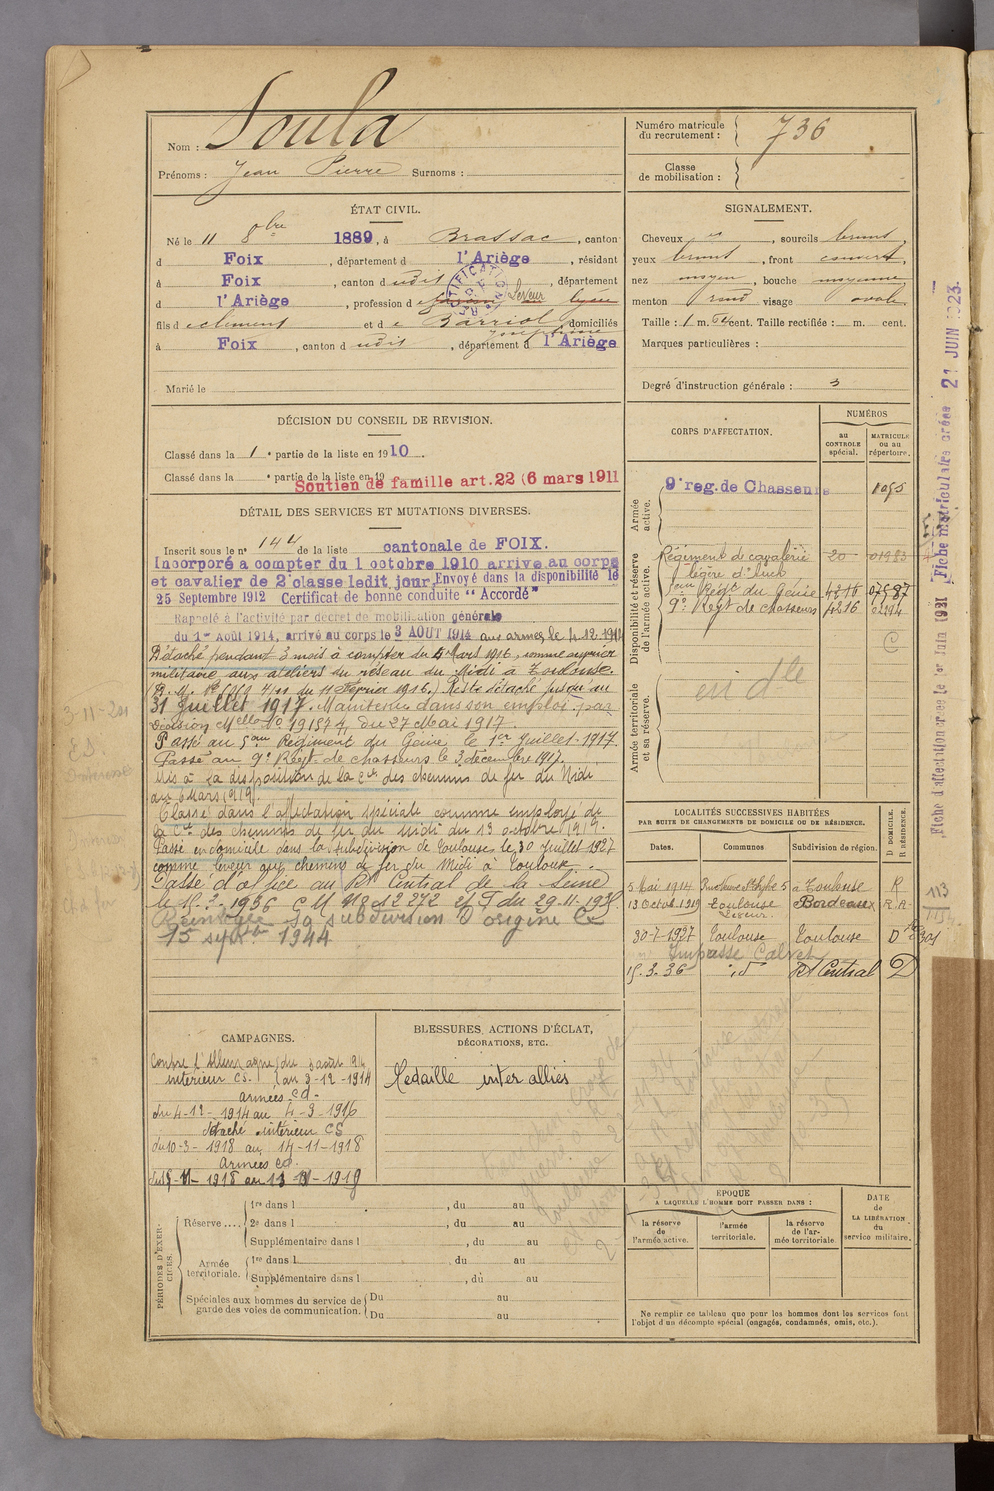 Nom : Soula
Prénoms : Jean Pierre Surnoms :
ÉTAT CIVIL.
Né le 11 8bre 1889, à Brassac, canton
d Foix, département d l'Ariège, résidant
à Foix, canton d udit, département
d l'Ariège, profession de Leveur au lycée
fils de clément et de Barriol Joséphine, domiciliés
à Foix, canton d udit, département d l'Ariège
Marié le
DÉCISION DU CONSEIL DE REVISION.
Classé dans la 1e partie de la liste en 1910.
Classé dans la e partie de la liste en 19
Soutien de famille art. 22 (6 mars 1911
DÉTAIL DES SERVICES ET MUTATIONS DIVERSES.
Inscrit sous le n° 144 de la liste cantonale de FOIX.
Incorporé a compter du 1 octobre 1910 arrive au corps
et cavalier de 2e classe ledit jour, Envoyé dans la disponibilité le
25 Septembre 1912 Certificat de bonne conduite “ Accordé ”
Rappelé à l'activité par decret de mobilisation générale
du 1er Août 1914, arrivé au corps le 3 AOUT 1914 aux armées le 4.12.1914
Détaché pendant 3 mois à compter du 4 Mars 1916, comme ouvrier
militaire aux ateliers du réseau du Midi à Toulouse.
du 11 Février 1916.) Reste détaché jusqu'au
31 Juillet 1917. Maintenu dans son emploi par
Décision Mlle N° 191574, du 27 Mai 1917.
Passé au 5eme Régiment du Génie le 1er Juillet 1917.
Passé au 9e Régt de chasseurs le 3 décembre 1917.
Mis à la disposition de la Cie des chemins de fer du Midi
au 6 Mars 1919.
Classé dans l'affectation spéciale comme employé de
la Cie des chemins de fer du Midi du 13 octobre 1919.
Passé en domicile dans la subdivision de Toulouse le 30 Juillet 1927
comme leveur aux chemins de fer du Midi à Toulouse.
Passé d'office au Rt Central de la Seine
le 15.3.1936 C M N° 12272 du 29-11-1935
Réintégré sa subdivision d'origine le
15 septbre 1944
CAMPAGNES.
Contre l'Allemagne du 3 août 1914
intérieur CS. au 3-12-1914
armées. CD.
du 4-12-1914 au 4-3-1916
Détaché intérieur CS
du 10-3-1918 au 14-11-1918
Armées CD.
BLESSURES, ACTIONS D'ÉCLAT,
DÉCORATIONS, ETC.
Médaille inter alliés
PÉRIODES D'EXERCICES.
Réserve .... 1re dans l , du au
2e dans l , du au
Supplémentaire dans l , du au
Armée territoriale. 1re dans l , du au
Supplémentaire dans l , du au
Spéciales aux hommes du service de garde des voies de communication. Du au
Du au
Numéro matricule du recrutement : 736
Classe de mobilisation :
SIGNALEMENT.
Cheveux et, sourcils bruns,
yeux bruns, front couvert,
nez moyen, bouche moyenne
menton rond visage ovale
Taille : 1 m. 54 cent. Taille rectifiée : m. cent.
Marques particulières :
Degré d'instruction générale : 3
CORPS D'AFFECTATION.
NUMÉROS
au CONTROLE spécial.
MATRICULE ou au répertoire.
Armée active.
9e reg. de Chasseurs
Disponibilité et réserve de l'armée active.
Régiment de cavalerie 20 01983
légère d'Auch
5eme Regt du Génie 4216 07587
9e Regt de chasseurs 4216 02194
C
Armée territoriale et sa réserve.
en dle
LOCALITÉS SUCCESSIVES HABITÉES
PAR SUITE DE CHANGEMENTS DE DOMICILE OU DE RÉSIDENCE.
Dates. Communes Subdivision de région. D DOMICILE. R RÉSIDENCE.
5 Mai 1914 5 à Toulouse R
13 Octob. 1919 Toulouse Bordeaux R.A.
Leveur.
30-7-1927 Toulouse Toulouse D
Impasse Calvet
15.3.36 id Rt Central D
ÉPOQUE
A LAQUELLE L'HOMME DOIT PASSER DANS :
la réserve de l'armée active.
l'armée territoriale.
la réserve de l'armée territoriale.
DATE DE LA LIBÉRATION du service militaire.
Ne remplir ce tableau que pour les hommes dont les services font
l'objet d'un décompte spécial (engagés, condamnés, omis, etc.).
Fiche d'affectation créée le 1er Juin 1921
Fiche matriculaire créée 21 JUIN 1923
113